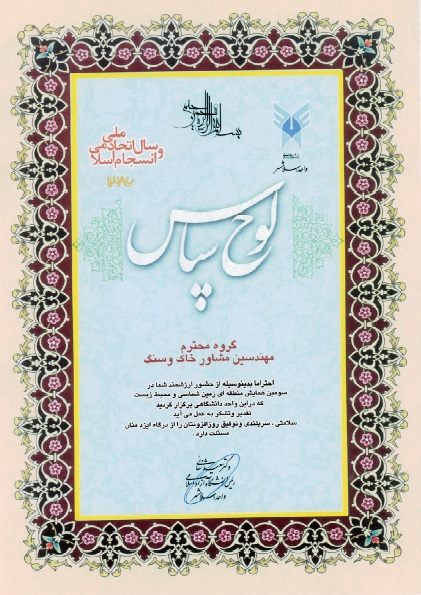 بسم الله الرحمن الرحیم
واحد اسلامشهر
سال اتحاد ملی
و انسجام اسلامی
۱۳۸۶
لوح سپاس
گروه محترم
مهندسین مشاور خاک وسنگ
احتراما بدینوسیله از حضور ارزشمند شما در
سومین همایش منطقه ای زمین شناسی و محیط زیست
که دراین واحد دانشگاهی برگزار گردید
تقدیر وتشکر به عمل می آید.
سلامتی ، سربلندی وتوفیق روزافزونتان را از درگاه ایزد منان
مسئلت دارد.
رئیس دانشگاه آزاد اسلامی
واحد اسلامشهر